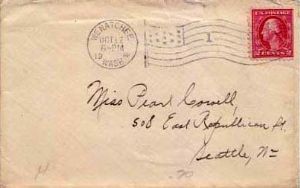 WENATCHEE
OCT 12
6-PM
19
WASH.
1
U.S. POSTAGE
2 CENTS 2
Miss Pearl Cowell
508 East Republican St.
Seattle, Wn